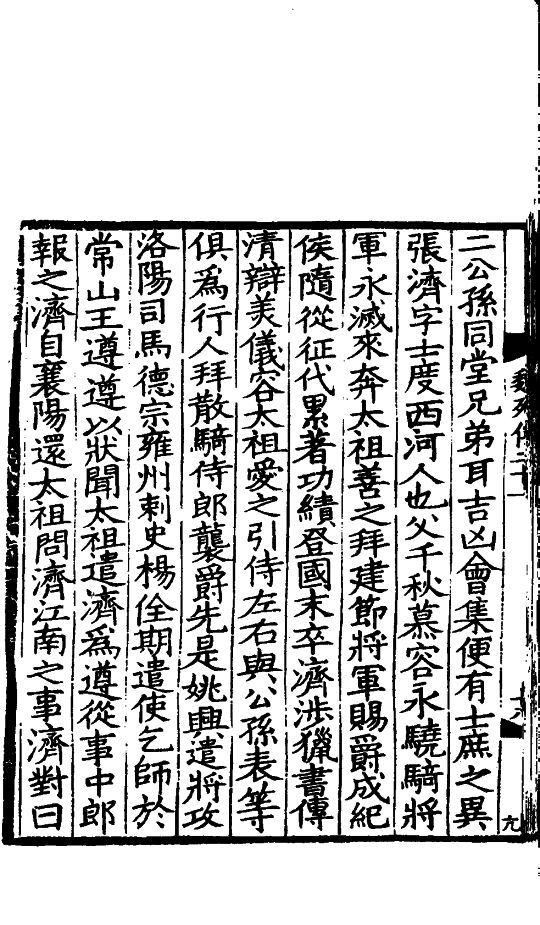 二公孫同堂兄弟耳吉凶會集便有士庶之異
張濟字士度西河人也父千秋慕容永驍騎將
軍永滅來奔太祖善之拜建節將軍賜爵成紀
侯隨從征代累著功績登國末卒濟涉獵書傳
清辯美儀容太祖愛之引侍左右與公孫表等
俱爲行人拜散騎侍郎襲爵先是姚興遣將攻
洛陽司馬德宗雍州刺史楊佺期遣使乞師於
常山王遵遵以狀聞太祖遣濟爲遵從事中郎
報之濟自襄陽還太祖問濟江南之事濟對曰